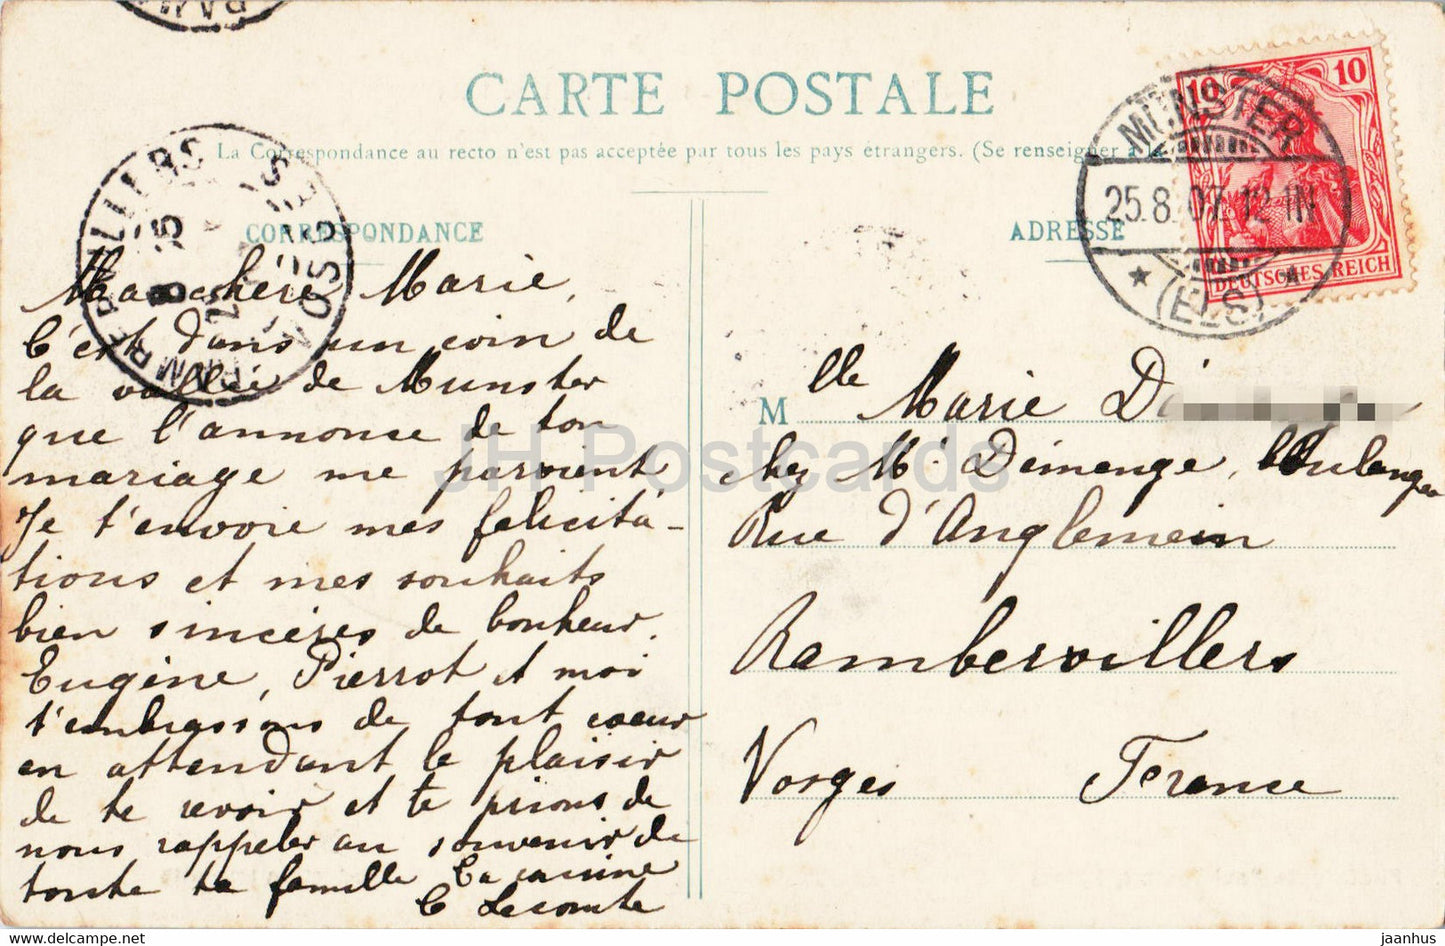 CARTE POSTALE
La Correspondance au recto n'est pas acceptée par tous les pays étrangers. (Se renseigner à la
CORRESPONDANCE
ADRESSE
MÜNSTER
25.8.07.12 IN
(ELS)
10 10
DEUTSCHES REICH
RAMBERVILLERS
VOSGES
Ma chère Marie,
C'est dans un coin de
la vallée de Munster
que l'annonce de ton
mariage me parvient
Je t'envoie mes félicita-
tions et mes souhaits
bien sincères de bonheur.
Eugène, Pierrot et moi
t'embrassons de tout coeur
en attendant le plaisir
de te revoir et te prions de
nous rappeler au souvenir de
toute ta famille Ta cousine
C Lecomte
Mlle Marie
chez Mr Démenge, Boulanger
Rue d'Anglemein
Rambervillers
Vosges France
JH Postcards
jaanhus
www.jh-postcards.com